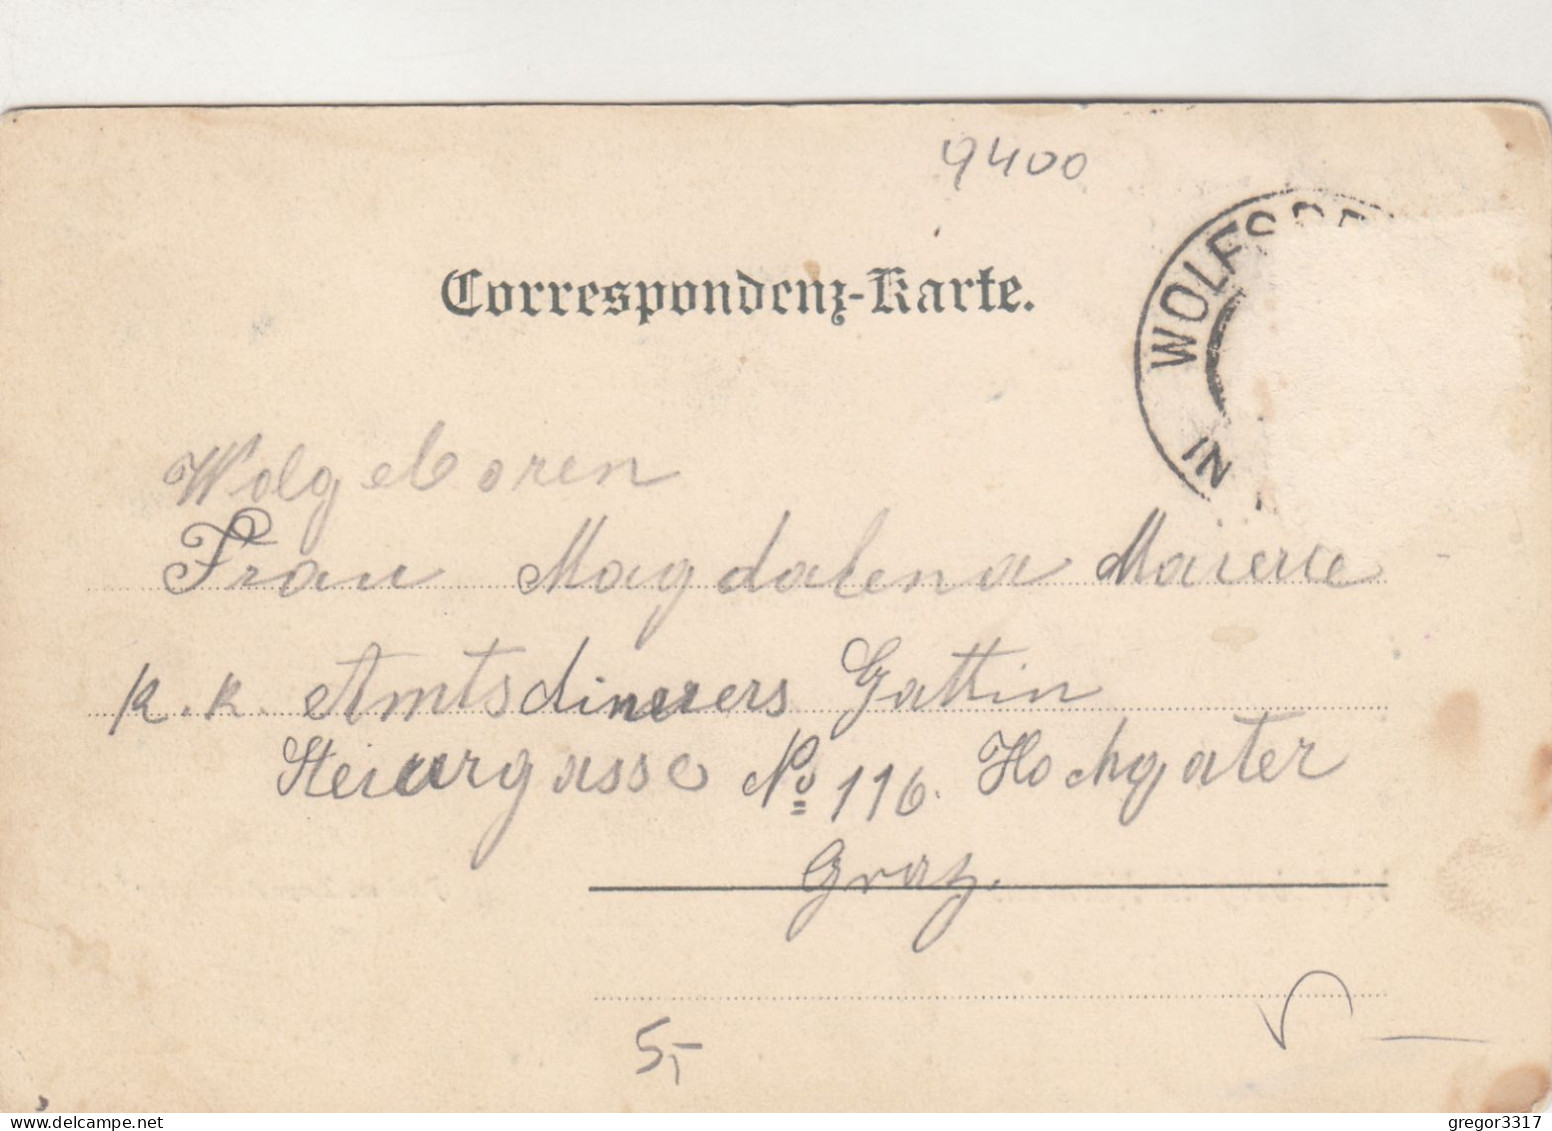 9400
Correspondenz-Karte.
WOLFSBE
IN
Wolgeboren
Frau Magdalena
k. k. Amtsdinerers Gattin
Steuurgasse No 116. Hochgater
Graz.
5,-
gregor3317